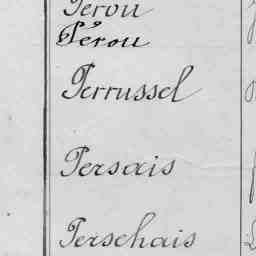 Perou
Pérou
Perrussel
Persais
Perschais